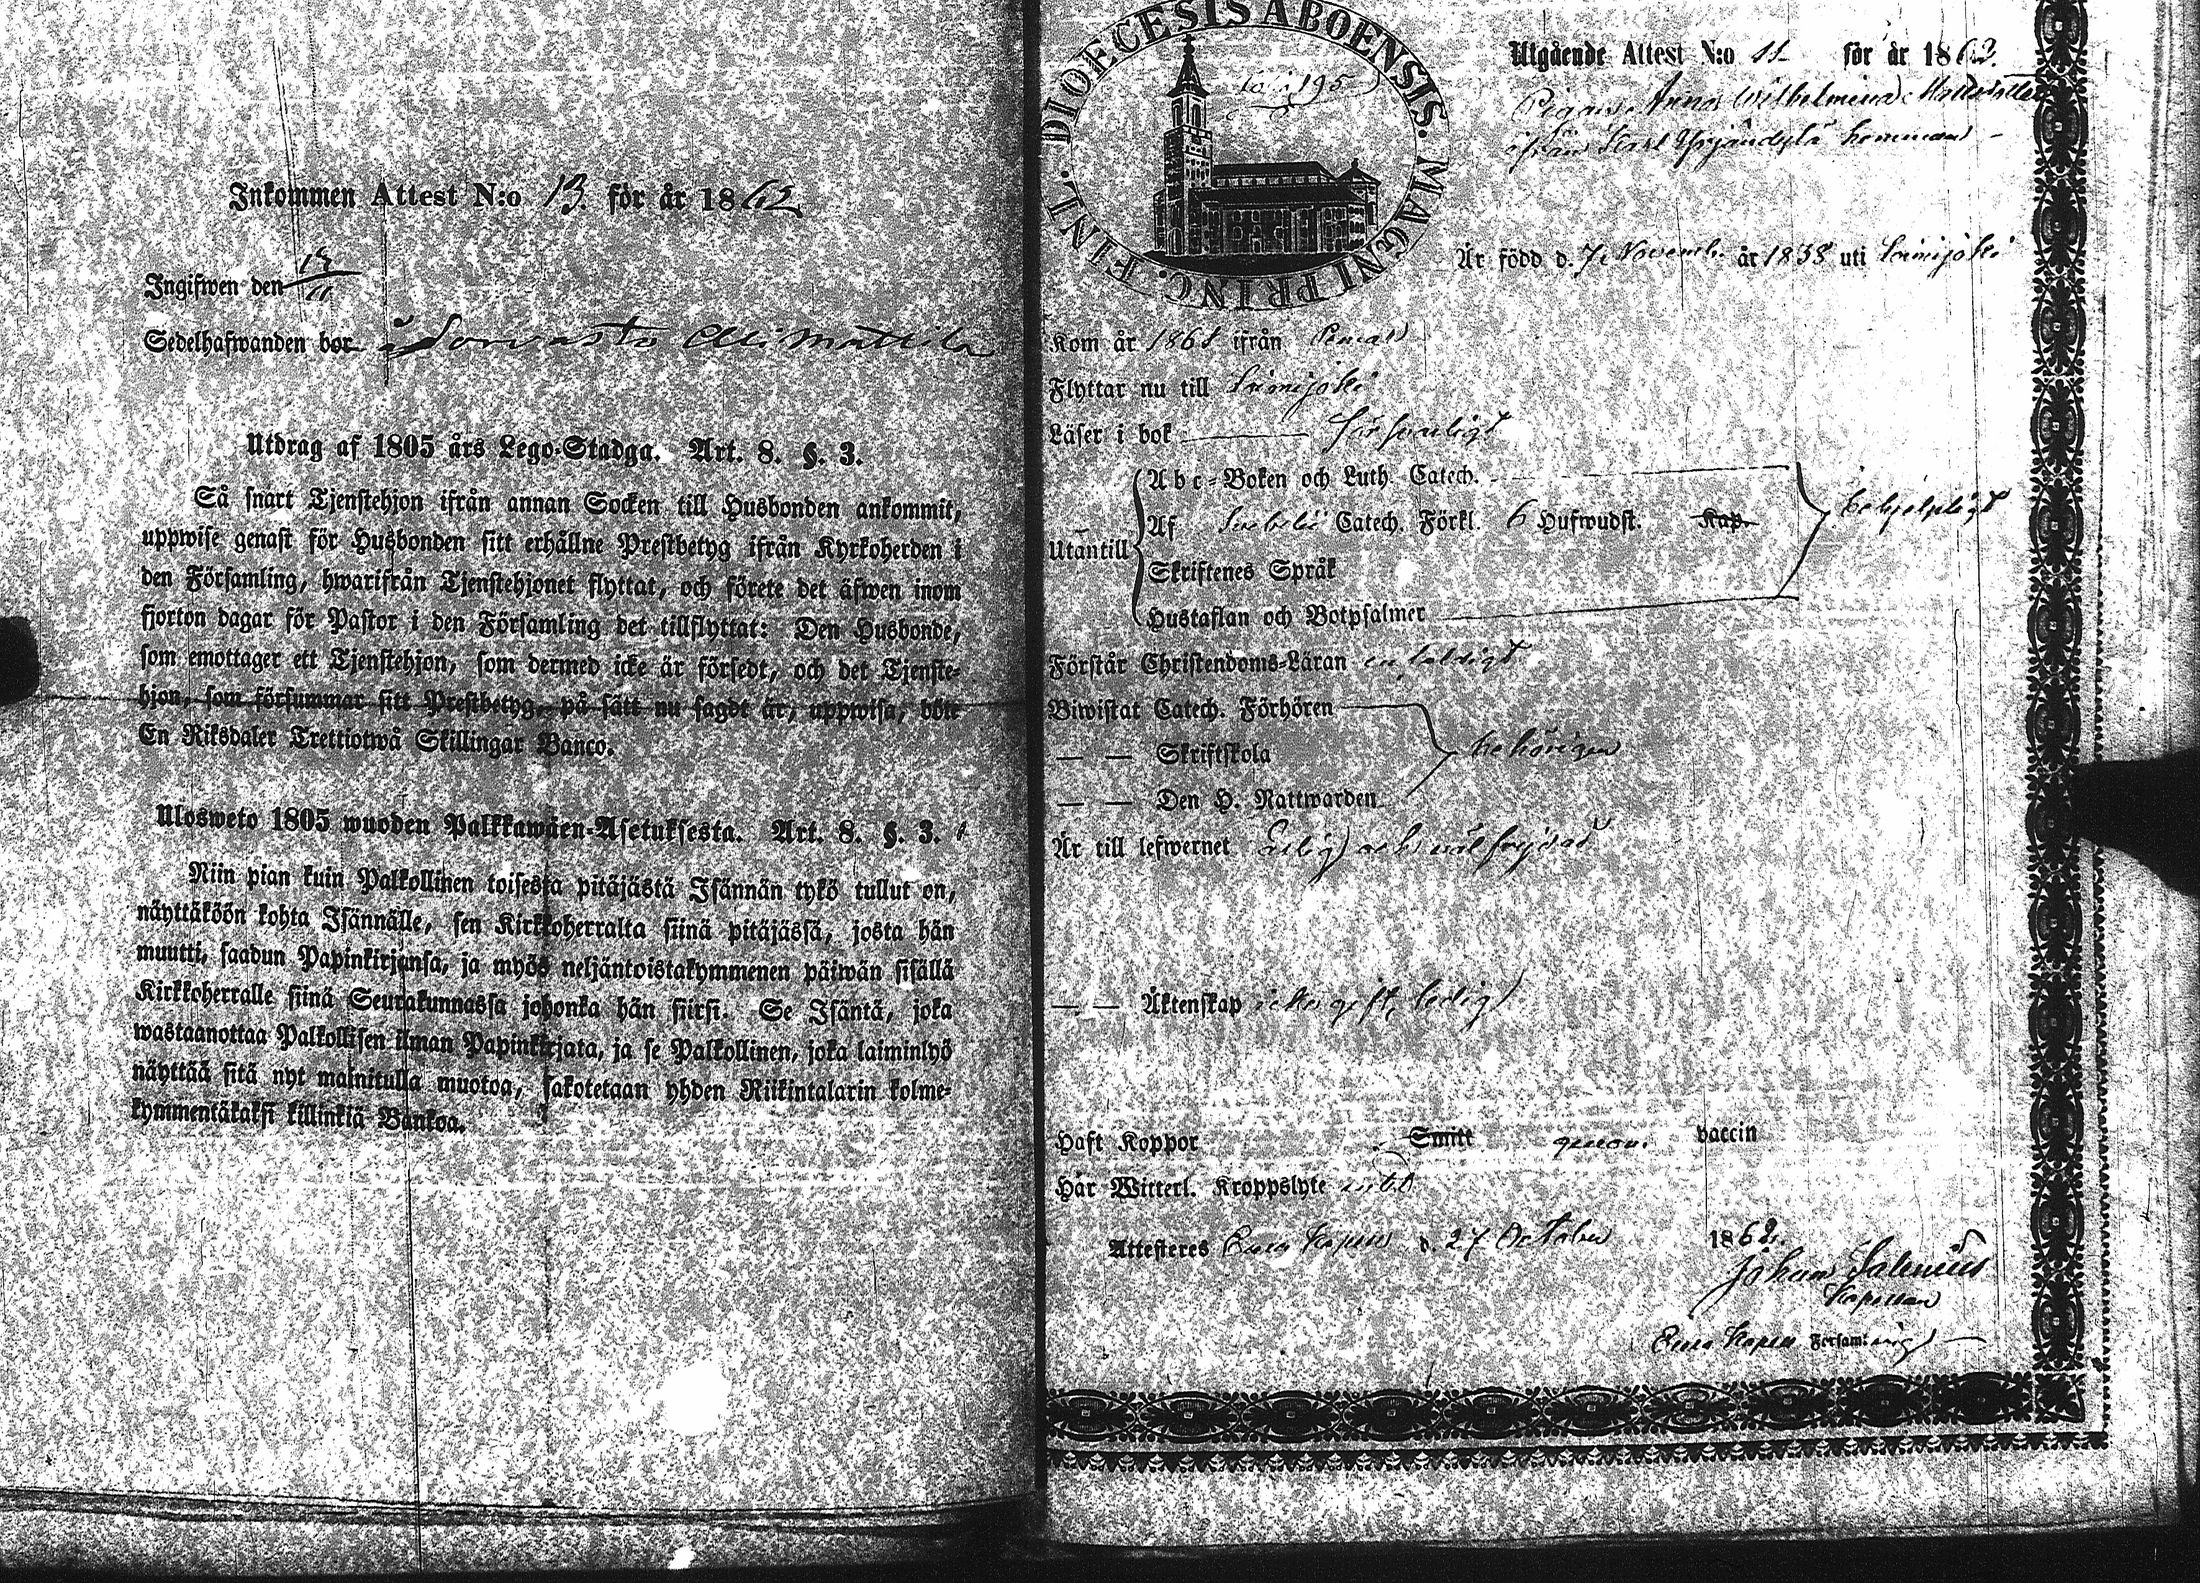 Inkommen Attest N:o 13. för år 1862
Ingifwen den 13/11
Sedelhafwanden bor å Sorvasto Ali Mattila
Utdrag af 1805 års Lego-Stadga. Art. 8. §. 3.
Så snart Tjenstehjon ifrån annan Socken till Husbonden ankommit,
uppwise genast för Husbonden sitt erhållne Prestbetyg ifrån Kyrkoherden i
den Församling, hwarifrån Tjenstehjonet flyttat, och förete det äfwen inom
fjorton dagar för Pastor i den Församling det tillflyttat: Den Husbonde,
som emottager ett Tjenstehjon, som dermed icke är försedt, och det Tjenste-
hjon, som försummar sitt Prestbetyg, på sätt nu sagdt är, uppwisa, böte
En Riksdaler Trettiotwå Skillingar Banco.
Ulosweto 1805 wuoden Palkkawäen-Asetuksesta. Art. 8. §. 3.
Niin pian kuin Palkollinen toisesta pitäjästä Isännän tykö tullut on,
näyttäköön kohta Isännälle, sen Kirkkoherralta siinä pitäjässä, josta hän
muutti, saadun Papinkirjansa, ja myös neljäntoistakymmenen päiwän sisällä
Kirkkoherralle siinä Seurakunnassa johonka hän siirsi. Se Isäntä, joka
wastaanottaa Palkollisen ilman Papinkirjata, ja se Palkollinen, joka laiminlyö
näyttää sitä nyt mainitulla muotoa, sakotetaan yhden Riikintalarin kolme-
kymmentäkaksi killinkiä Bankoa.
DIOECESIS ABOENSIS. MAGNI PRINC. FINL.
195
Utgående Attest N:o 11 för år 1862.
Pigan Anna Wilhelmina Mattsdotter
ifrån Yrjändylä hemman
Är född d. 7 Novemb. år 1838 uti Loimijoki
Kom år 1861 ifrån Pemar
Flyttar nu till Loimijoki
Läser i bok försvarligt
Utantill
Abc-Boken och Luth. Catech.
Af Svebelii Catech. Förkl. 6 Hufwudst. Kap.
Skriftenes Språk
Hustaflan och Botpsalmer
behjelpligt
Förstår Christendoms-Läran enfaldigt
Biwistat Catech. Förhören
— — Skriftskola behörigen
— — Den H. Nattwarden
Är till lefwernet ärlig och väl frejdad
— — Äktenskap icke gift, ledig
Haft Koppor Smitt genom vaccin
Har Witterl. Kroppslyte intet
Attesteres Eura Kapell d. 27 October 1862.
Johan Salenius
Kapellan
Eura Kapell Församling